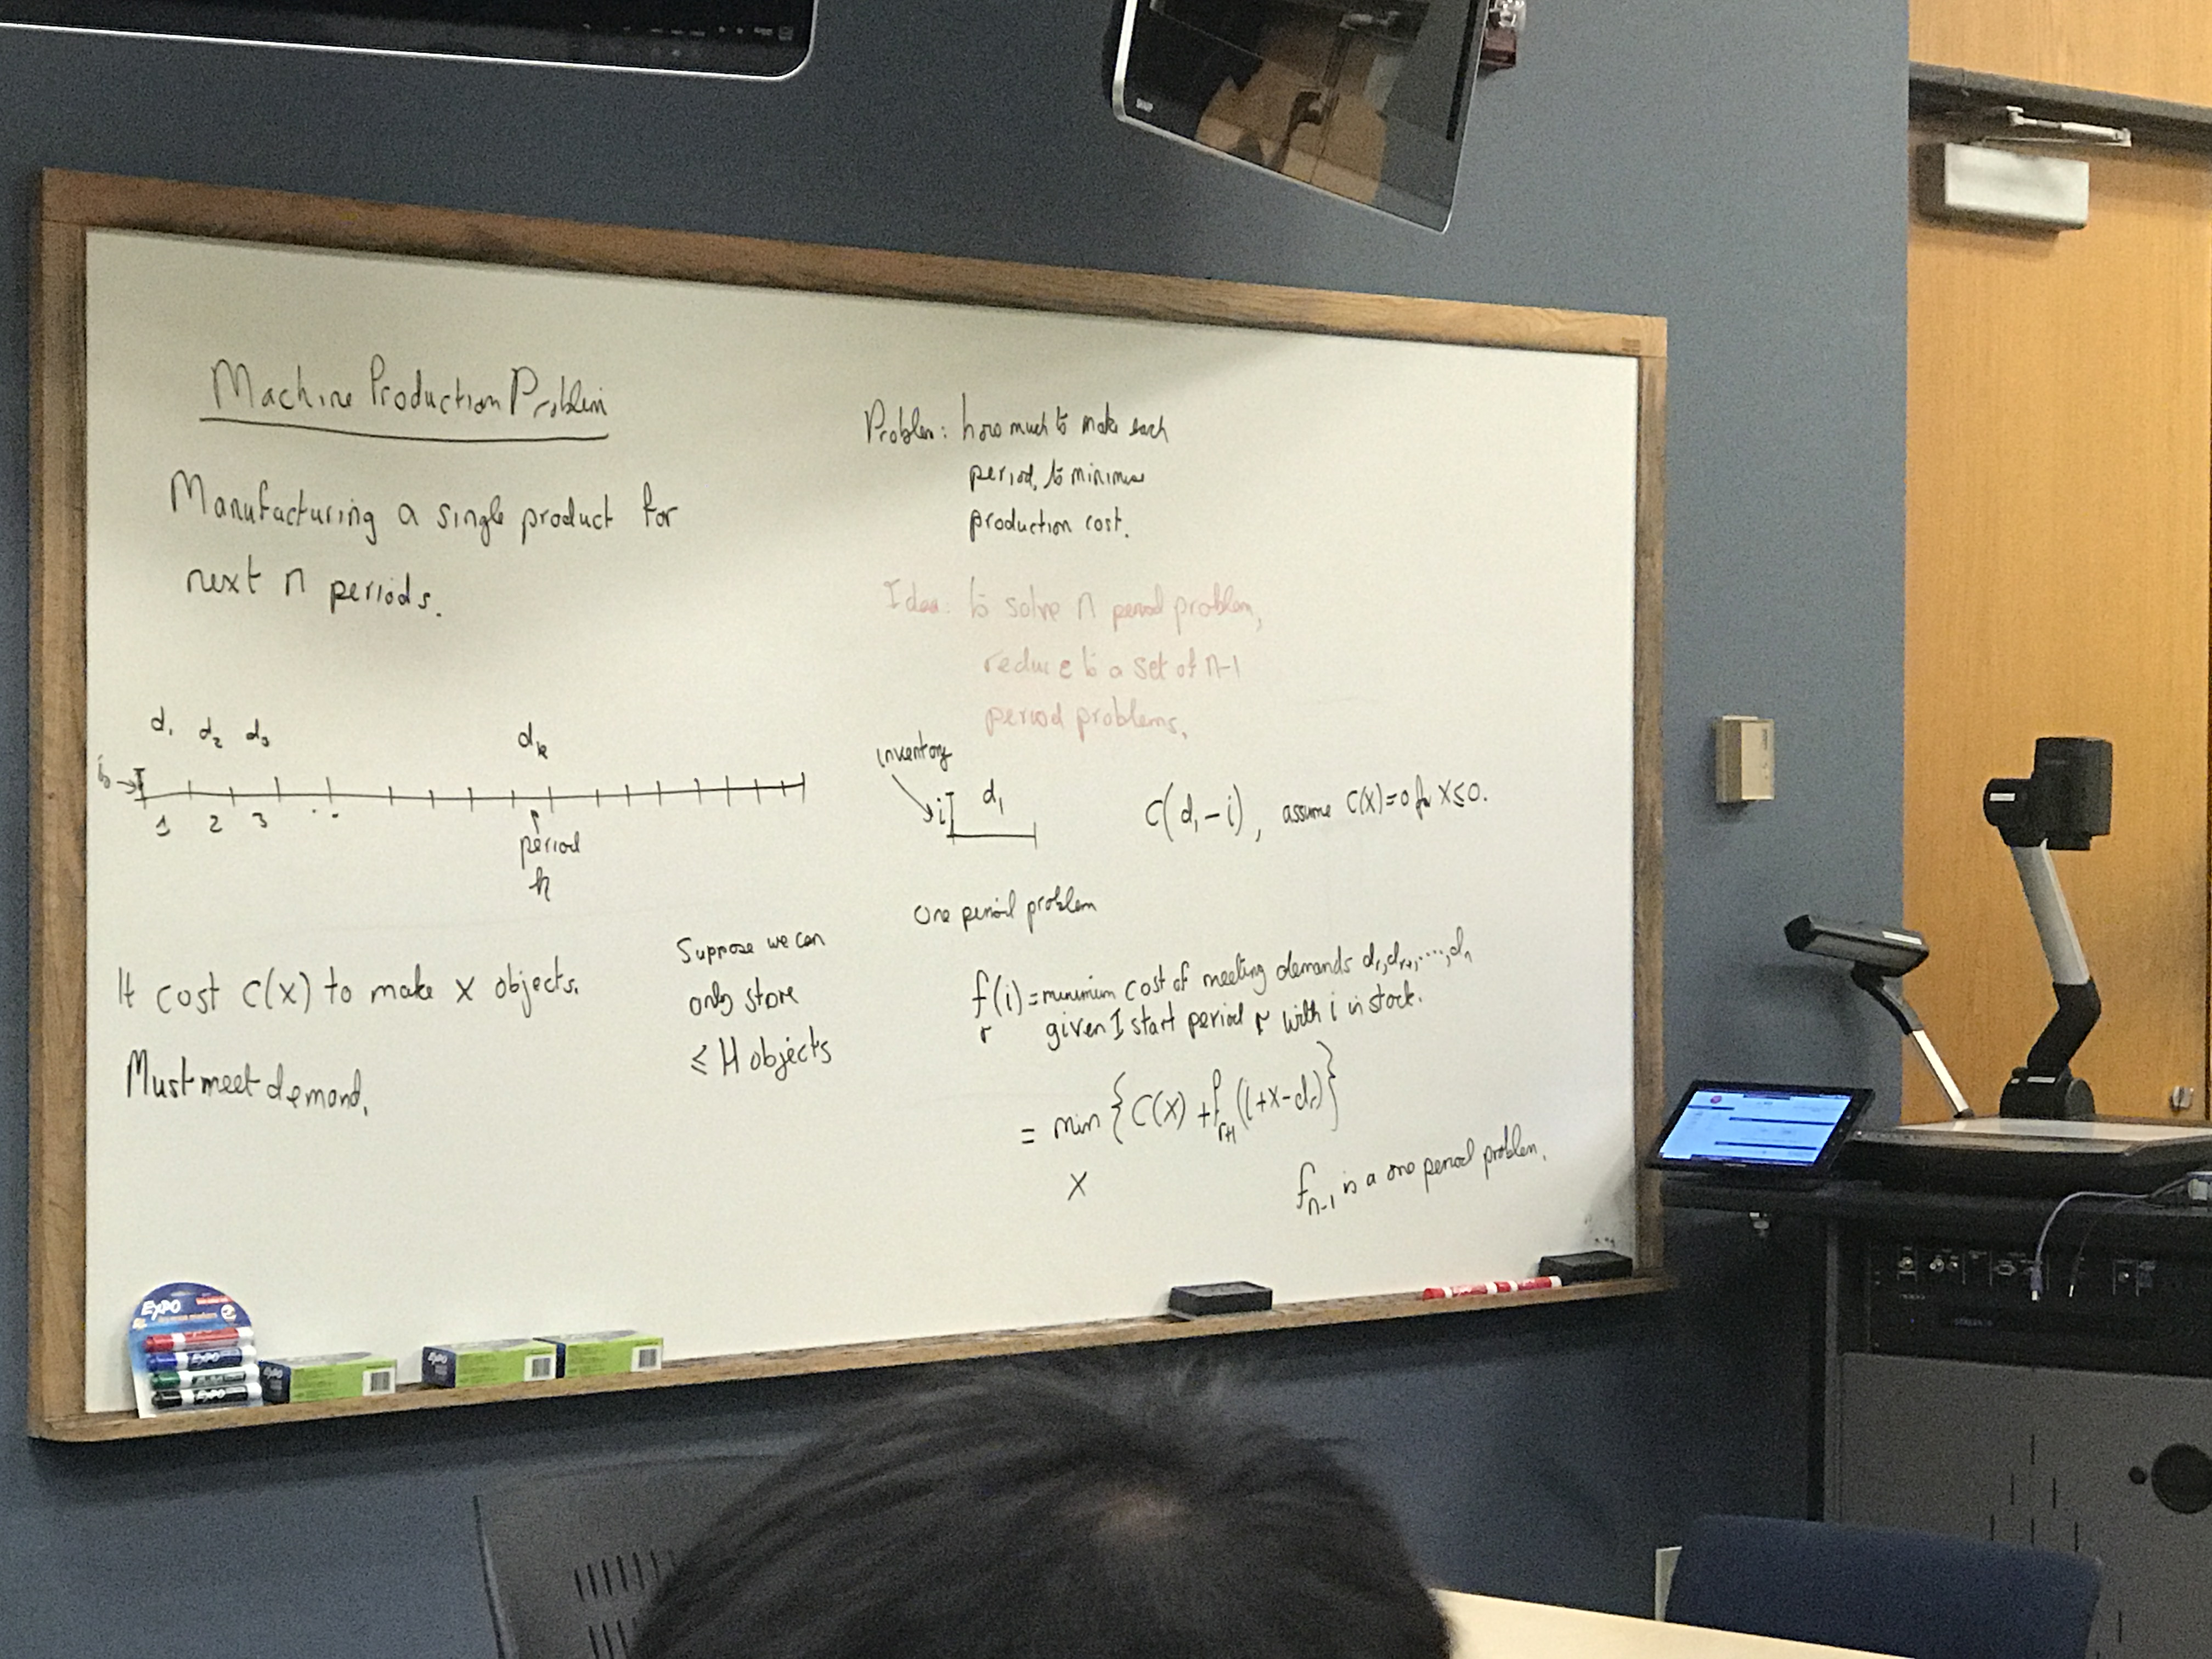 Machine Production Problem
Manufacturing a single product for
next n periods.
d₁ d₂ d₃ dₖ
i₀ →
1 2 3 . .
period
k
It cost c(x) to make x objects.
Must meet demand.
Suppose we can
only store
≤ H objects
Problem: how much to make each
period, to minimise
production cost.
Idea: to solve n period problem,
reduce to a set of n-1
period problems.
inventory
i d₁
C(d₁ - i), assume C(x)=0 for x≤0.
One period problem
fᵣ(i) = minimum cost of meeting demands dᵣ, dᵣ₊₁, ...., dₙ
given I start period r with i in stock.
= min {C(x) + fᵣ₊₁(i+x-dᵣ)}
x
fₙ₋₁ is a one period problem.
EXPO
EXPO
EXPO
EXPO
SHARP